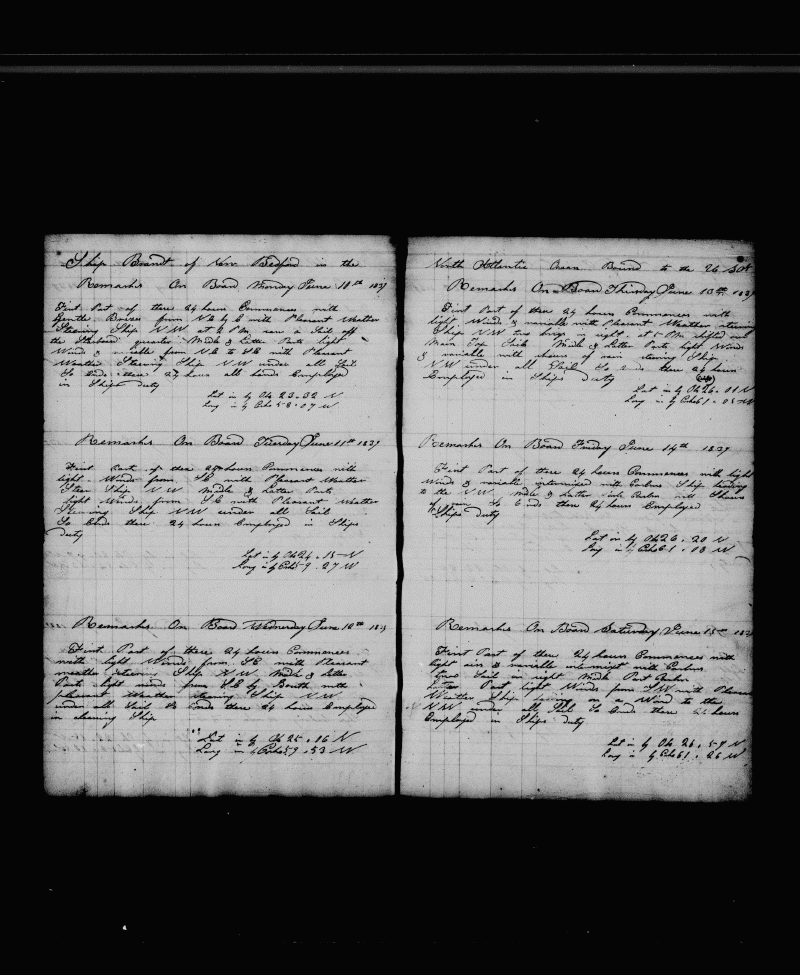 Ship Brandt of New Bedford in the
Remarks On Board Monday June 10th 1839
First Part of these 24 hours Commences with
Gentle Breeses from NE by E with Pleasant Weather
Steering Ship NW at 2 PM saw a Sail off
the Starboard quarter Middle & Latter Parts light
Winds & variable from NE to SE with Pleasant
Weather Steering Ship NW under all Sail
So Ends these 24 hours all hands Employed
in Ships duty
Lat in by Ob 23.32 N
Long in by Cho 58.07 W
Remarks On Board Tuesday June 11th 1839
First Part of these 24 hours Commences with
light Winds from SE with Pleasant Weather
Steer Ship NW Middle & Latter Parts
light Winds from SE with Pleasant Weather
Steering Ship NW under all Sail
So Ends these 24 hours Employed in Ships
duty
Lat in by Ob 24.15 N
Long in by Cho 59.27 W
Remarks On Board Wednesday June 12th 1839
First Part of these 24 hours Commences
with light Winds from SE with Pleasant
weather steering Ship NW Middle & latter
Parts light winds from SE by South with
pleasant Weather steering Ship NW
under all Sail So Ends these 24 hours Employed
in cleaning Ship
Lat in by Ob 25.16 N
Long in by Cho 59.53 W
North Atlantic Ocean Bound to the
Remarks On Board Thursday June 13th 1839
First Part of these 24 hours Commences with
light Winds & variable with Pleasant Weather steering
Ship NW two brigs in sight at 6 PM shifted our
Main Top Sail Middle & Latter Parts light Winds
& variable with showers of rain steering Ship
NW under all Sail So Ends these 24 hours
Employed in Ships duty
Lat in by Ob 26.01 N
Long in by Cho 61.05 W
Remarks On Board Friday June 14th 1839
First Part of these 24 hours Commences with light
Winds & variable intermixed with Calms Ship heading
to the NW Middle & Latter parts Calm with Showers
of rain So Ends these 24 hours Employed
in Ships duty
Lat in by Ob 26.20 N
Long in by Cho 61.03 W
Remarks On Board Saturday June 15th 1839
First Part of these 24 hours Commences with
light airs & variable intermixt with Calms
Sail in sight Middle Part Calm
Latter Part light Winds from SW with Pleasant
Weather Ship on a Wind to the
NW under all Sail So Ends these 24 hours
Employed in Ships duty
Lat in by Ob 26.59 N
Long in by Cho 61.26 W